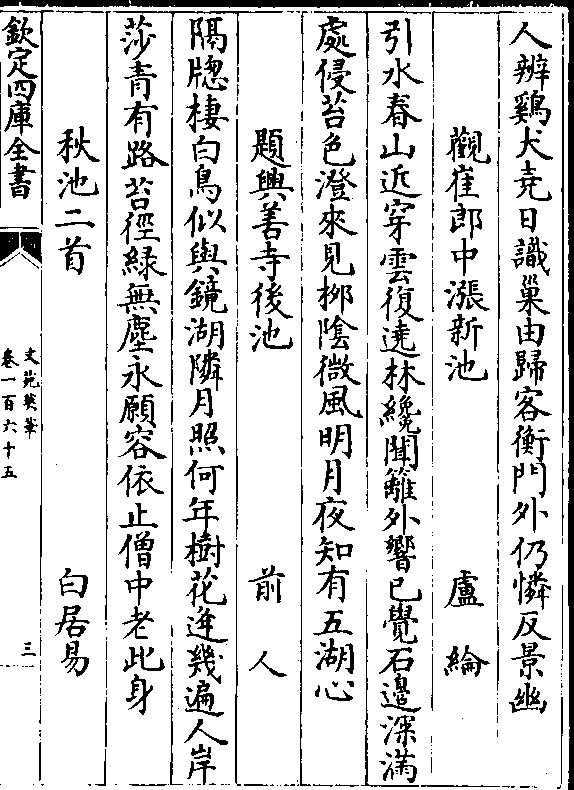 人辨鷄犬尭日識巢由歸客衡門外仍憐反景幽
觀崔郎中漲新池 盧綸
引水春山近穿雲復遶林纔聞籬外響已覺石邊深滿
處侵苔色澄來見桞陰微風明月夜知有五湖心
題興善寺後池 前人
隔牎棲白鳥似與鏡湖隣月照何年樹花逢幾遍人岸
莎青有路苔徑緑無塵永願容依止僧中老此身
秋池二首 白居易
欽定四庫全書
文苑英華
卷一百六十五
三